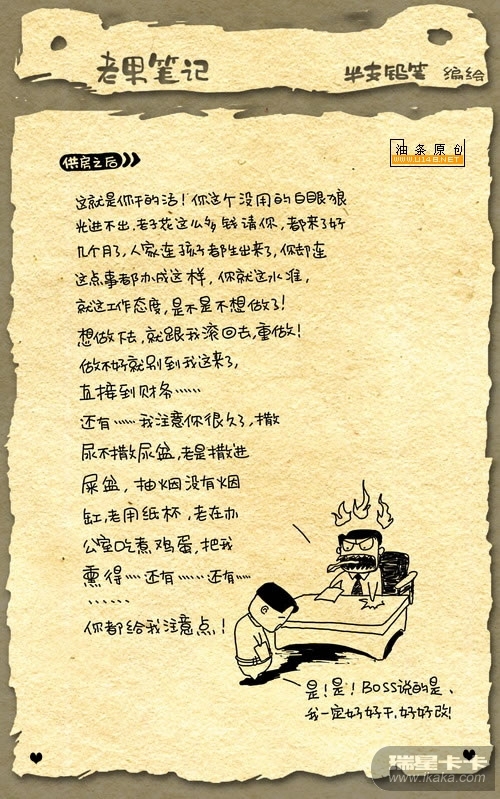 老果笔记
半支铅笔 编绘
油条原创
WWW.U148.NET
供房之后
这就是你干的活！你这个没用的白眼狼
光进不出，老子花这么多钱请你，都来了好
几个月了，人家连孩子都生出来了，你却连
这点事都办成这样，你就这水准，
就这工作态度，是不是不想做了！
想做下去，就跟我滚回去，重做！
做不好就别到我这来了，
直接到财务……
还有……我注意你很久了，撒
尿不撒尿盆，老是撒进
屎盆，抽烟没有烟
缸，老用纸杯，老在办
公室吃煮鸡蛋，把我
熏得……还有……还有……
……
你都给我注意点！
是！是！BOSS说的是、
我一定好好干，好好改！
瑞星卡卡
www.ikaka.com